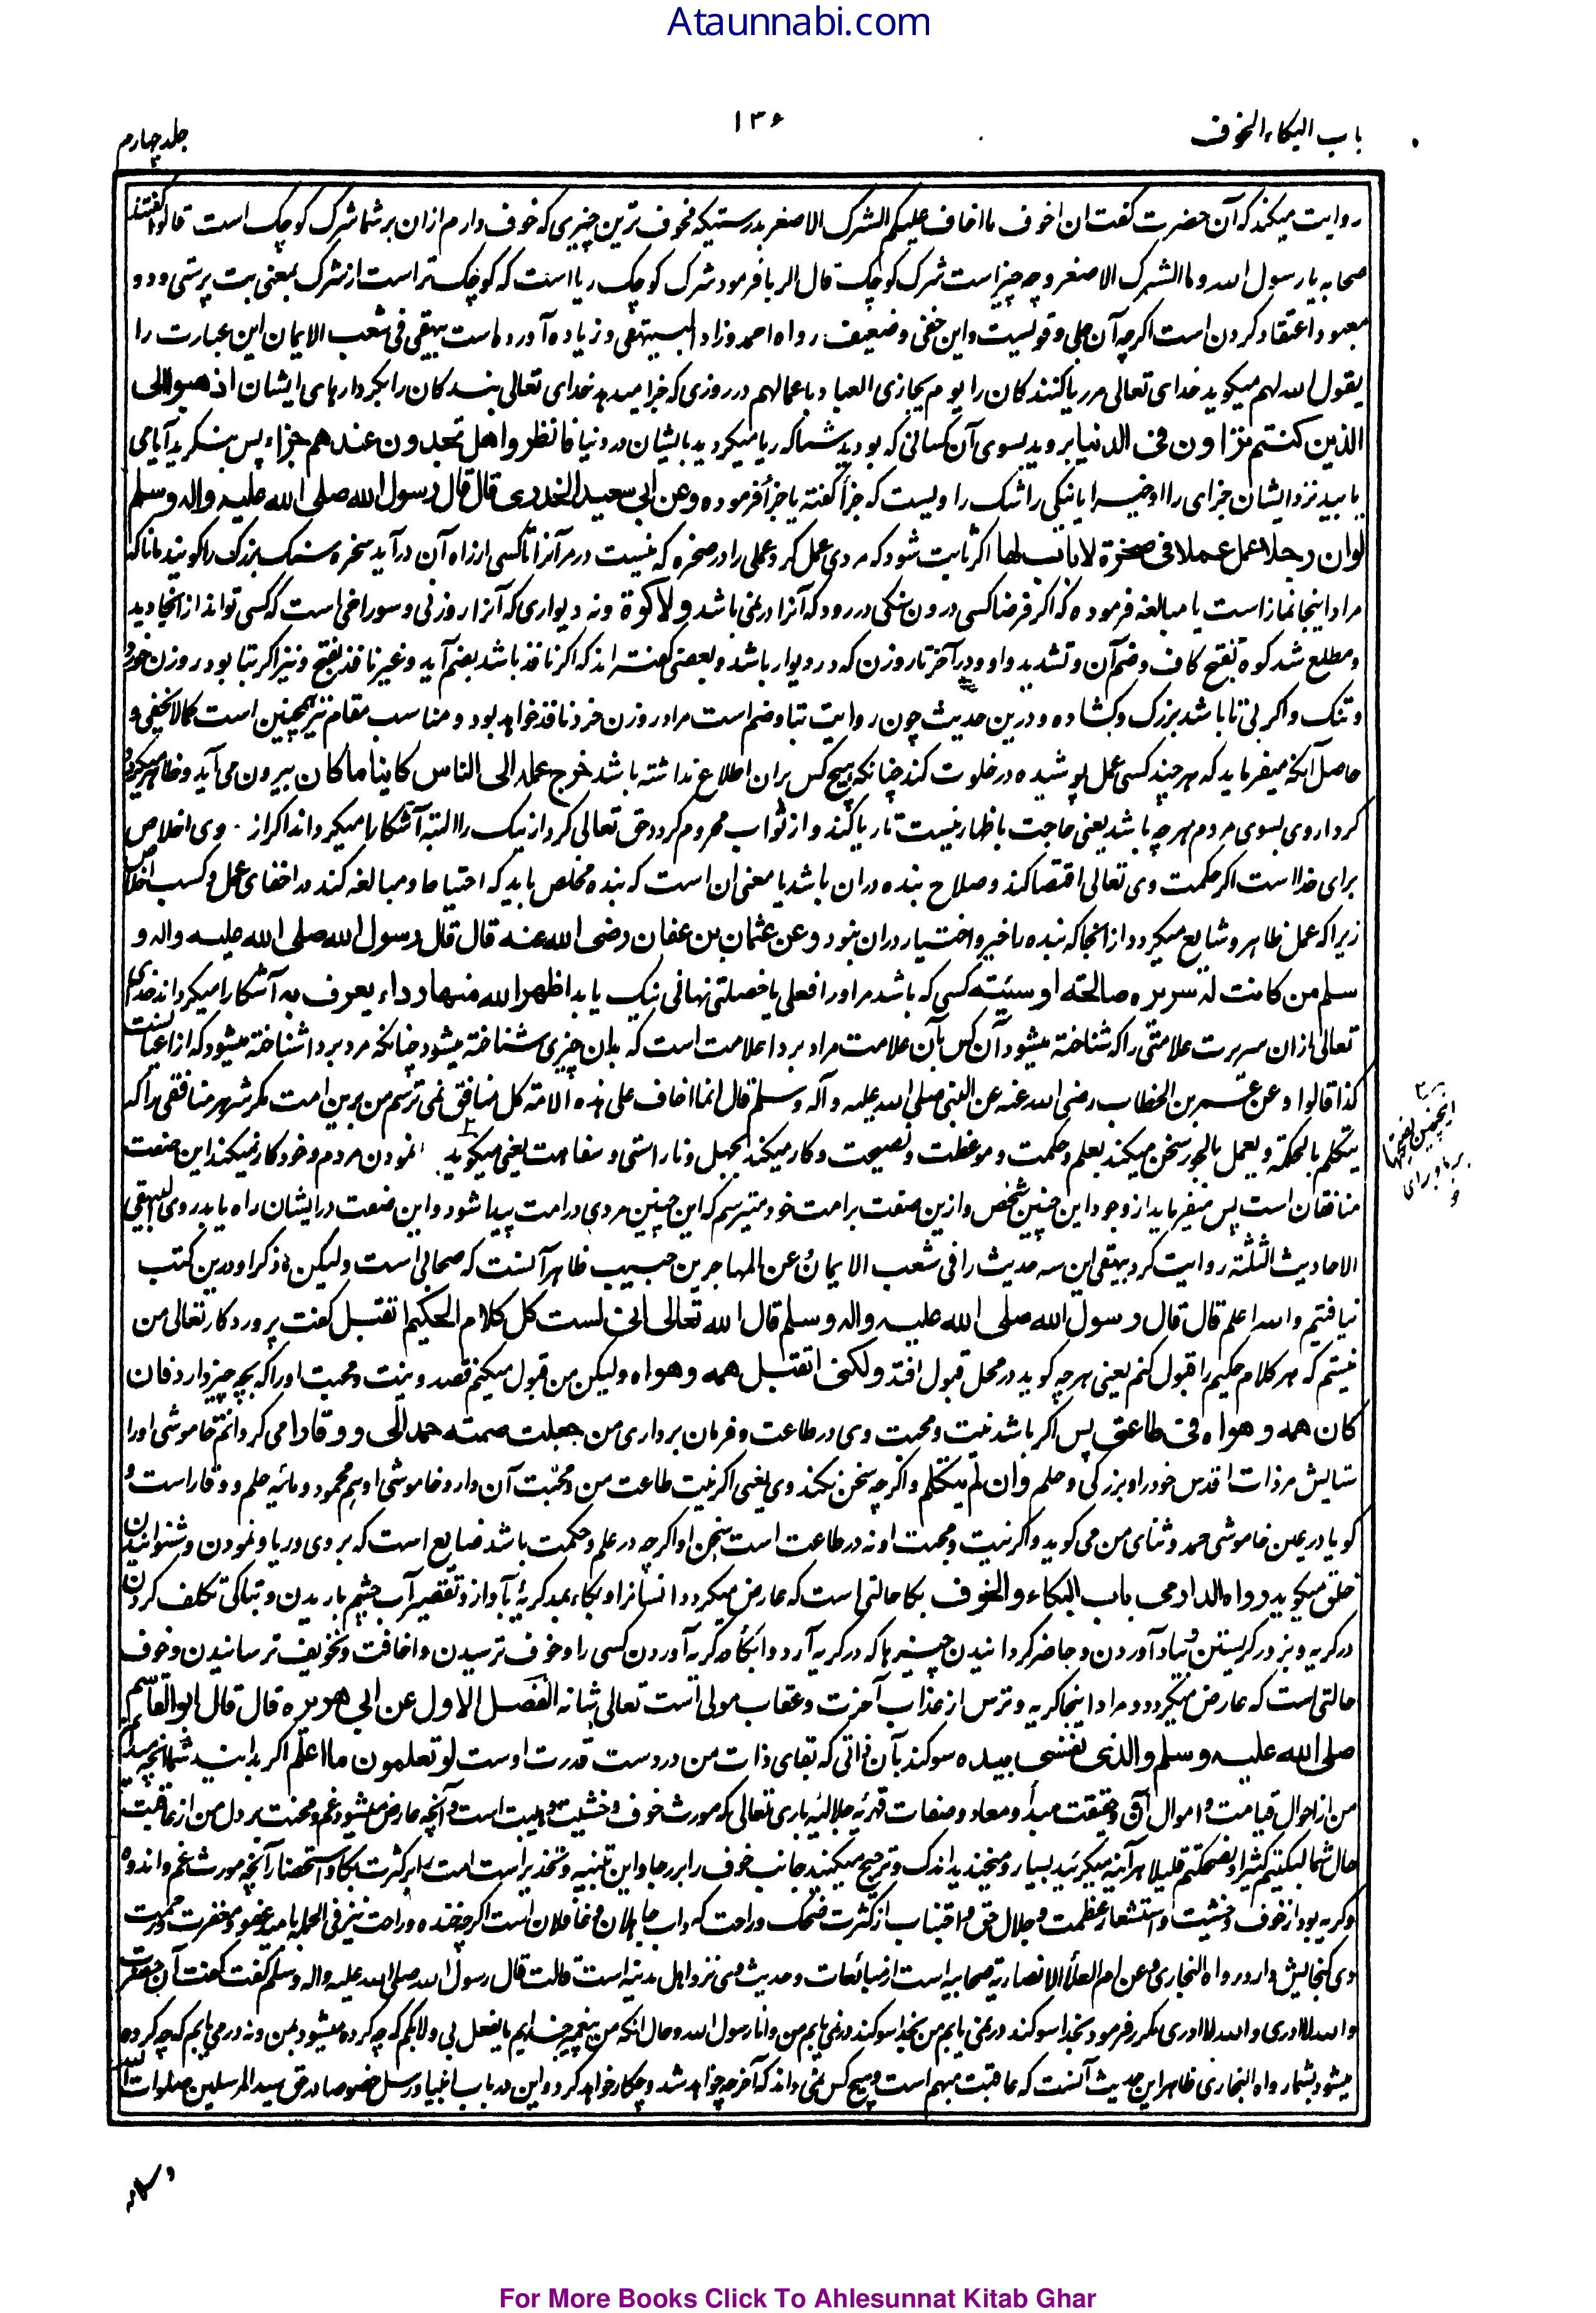 Ataunnabi.com
باب البکاء والخوف
۱۳۶
جلد چهارم
روایت میکند که آن حضرت گفت ان اخوف ما اخاف علیکم الشرک الاصغر بدرستیکه مخوف ترین چیزی که خوف دارم ازان بر شما شرک کوچک است قالوا گفتند
صحابه یا رسول الله وما الشرک الاصغر و چه چیز است شرک کوچک قال الریا فرمود شرک کوچک ریا است که کوچک تر است از شرک بمعنی بت پرستی و دو
معبود اعتقاد کردن است اگرچه آن جلی و قولیست و این خفی و ضعیف رواه احمد وزاد البیهقی و زیاده آورده است بیهقی فی شعب الایمان این عبارت را
یقول الله لهم میگوید خدای تعالی مر ریا کنندگان را یوم یجازی العباد باعمالهم در روزی که جزا میدهد خدای تعالی بندگان را بکردارهای ایشان اذهبوا الی
الذین کنتم تراؤن فی الدنیا بروید بسوی آن کسانی که بودید شما که ریا میکردید بایشان در دنیا فانظروا هل تجدون عندهم جزاء پس بنگرید آیا می
یابید نزد ایشان جزای را او خیرا یا نیکی را شک راویست که جزأ گفته یا خیرأ فرموده وعن ابی سعید الخدری قال قال رسول الله صلی الله علیه واله وسلم
لو ان رجلا عمل عملا فی صخرة لا باب لها اگر ثابت شود که مردی عمل کرد عملی را در صخره که نیست در مر آنرا تا کسی از راه آن درآید صخره سنگ بزرگ را گویند مانا که
مراد اینجا نماز است یا مبالغه فرموده که اگر فرضا کسی درون سنگی در رود که آنرا دری نمی باشد ولا کوة ونه دیواری که آنرا روزنی و سوراخی است که کسی تواند از انجا دید
و مطلع شد کوه بفتح کاف و ضم آن و تشدید واو و در آخر تا روزن که در دیوار باشد و بعضی گفته اند که اگر نافذ باشد بضم آید و غیر نافذ بفتح و نیز اگر بتا بود روزن خورد
و تنگ و اگر بی تا باشد بزرگ و کشاده و درین حدیث چون روایت بتا و ضم است مراد روزن خرد نافذ خواهد بود و مناسب مقام نیز همچنین است کما لا یخفی و
حاصل آنکه میفرماید که هر چند کسی عمل پوشیده در خلوت کند چنانکه هیچ کس بران اطلاع نداشته باشد خرج عمله الی الناس کاینا ما کان بیرون می آید و ظاهر میگردد
کردار وی بسوی مردم هر چه باشد یعنی حاجت باظهار نیست تا ریا کند و از ثواب محروم گردد حق تعالی کردار نیک را البته آشکارا میگرداند اگر از وی اخلاص
برای خدا است اگر حکمت وی تعالی اقتضا کند و صلاح بنده دران باشد یا معنی ان است که بنده مخلص باید که احتیاط و مبالغه کند در اخفای عمل و کسب اخلاص
زیرا که عمل ظاهر و شایع میگردد از انجا که بنده را خبر و اختیار دران نبود وعن عثمان بن عفان رضی الله عنه قال قال رسول الله صلی الله علیه واله و
سلم من کانت له سریره صالحة او سیئة کسی که باشد مر او را فعلی یا خصلتی نهانی نیک یا بد اظهر الله منها رداء یعرف به آشکارا میگرداند خدای
تعالی ازان سریرت علامتی را که شناخته میشود آن کس بآن علامت مراد بردا علامت است که بدان چیزی شناخته میشود چنانکه مرد بردا شناخته میشود که از اعیانست
کذا قالوا وعن عمر بن الخطاب رضی الله عنه عن النبی صلی الله علیه وآله وسلم قال انما اخاف علی هذه الامة کل منافق نمی ترسم من برین امت مگر شر هر منافقی را که
یتکلم بالحکمة ویعمل بالجور سخن میکند بعلم و حکمت و موعظت و نصیحت و کار میکند بجهل و ناراستی و سفاهت یعنی میگوید نمودن مردم و خود کار نمیکند این صفت
منافقان است پس میفرماید از وجود این چنین شخص و ازین صفت بر امت خود میترسم که این چنین مردی در امت پیدا شود و این صفت در ایشان راه یابد روی البیهقی
الاحادیث الثلثة روایت کرد بیهقی این سه حدیث را فی شعب الایمان وعن المهاجر بن حبیب ظاهر آنست که صحابی است ولیکن ذکر او درین کتب
نیافتیم والله اعلم قال قال رسول الله صلی الله علیه واله وسلم قال الله تعالی انی لست کل کلام الحکیم اتقبل گفت پروردگار تعالی من
نیستم که هر کلام حکیم را قبول کنم یعنی هر چه گوید در محل قبول افتد ولکنی اتقبل همه وهواه ولیکن من قبول میکنم قصد و نیت و محبت او را که بچه چیز دارد فان
کان همه وهواه فی طاعتی پس اگر باشد نیت و محبت وی در طاعت و فرمان برداری من جعلت صمته حمدا لی ووقارا می گردانم خاموشی او را
ستایش مر ذات اقدس خود را و بزرگی و حلم وان لم یتکلم و اگرچه سخن نکند وی یعنی اگر نیت طاعت من و محبت آن دارد خاموشی او هم محمود و مایه حلم و وقار است و
گویا در عین خاموشی حمد و ثنای من می گوید و اگر نیت و محبت او نه در طاعت است سخن او اگرچه در علم و حکمت باشد ضایع است که بر وی در ریا و نمودن و شنوانیدن
خلق میگوید رواه الدارمی باب البکاء والخوف بکا حالتی است که عارض میگردد انسانرا و بکاء بمد گریه بآواز و تقصیر آب چشم باریدن و تباکی تکلف کردن
در گریه و بزور گریستن و بیاد آوردن و حاضر گردانیدن چیزها که در گریه آرد و ابکاء در گریه آوردن کسی را و خوف ترسیدن و اخافت و تخویف ترسانیدن و خوف
حالتی است که عارض میگردد و مراد اینجا گریه و ترس از عذاب آخرت و عقاب مولی است تعالی شانه الفصل الاول عن ابی هریره قال قال ابو القاسم
صلی الله علیه وسلم والذی نفسی بیده سوگند بآن ذاتی که بقای ذات من در دست قدرت اوست لو تعلمون ما اعلم اگر بدانید شما آنچه میدانم
من از احوال قیامت و اهوال آن و حقیقت مبدأ و معاد و صفات قهریه جلالیه باری تعالی که مورث خوف و خشیت و هیبت است و آنچه عارض میشود غم و محنت بر دل من از عاقبت
حال شما لبکیتم کثیرا ولضحکتم قلیلا هر آینه میگریید بسیار و میخندید اندک و ترجیح میکنید جانب خوف را بر رجا و این تنبیه و تحذیر است امت را بر کثرت بکا و استحضار آنچه مورث غم و اندوه
و گریه بود از خوف و خشیت و استشعار عظمت و جلال حق و اجتناب از کثرت ضحک و راحت که داب جاهلان و غافلان است اگرچه خنده و راحت نیز فی الجمله بامید عفو و مغفرت و رحمت
وی گنجایش دارد رواه البخاری وعن ام العلاء الانصاریة صحابیه است از مبائعات و حدیث وی نزد اهل مدینه است قالت قال رسول الله صلی الله علیه واله وسلم گفت گفت آن حضرت
والله لا ادری والله لا ادری مکرر فرمود بخدا سوگند در نمی یابم من بخدا سوگند در نمی یابم من وانا رسول الله و حال آنکه من پیغمبر خدایم ما یفعل بی ولا بکم که چه کرده میشود بمن و نه در می یابم که چه کرده
میشود بشما رواه البخاری ظاهر این حدیث آنست که عاقبت مبهم است و هیچ کس نمی داند که آخر چه خواهد شد و چکار خواهد کرد و این در باب انبیا و رسل خصوصا در حق سید المرسلین صلوات الله
For More Books Click To Ahlesunnat Kitab Ghar